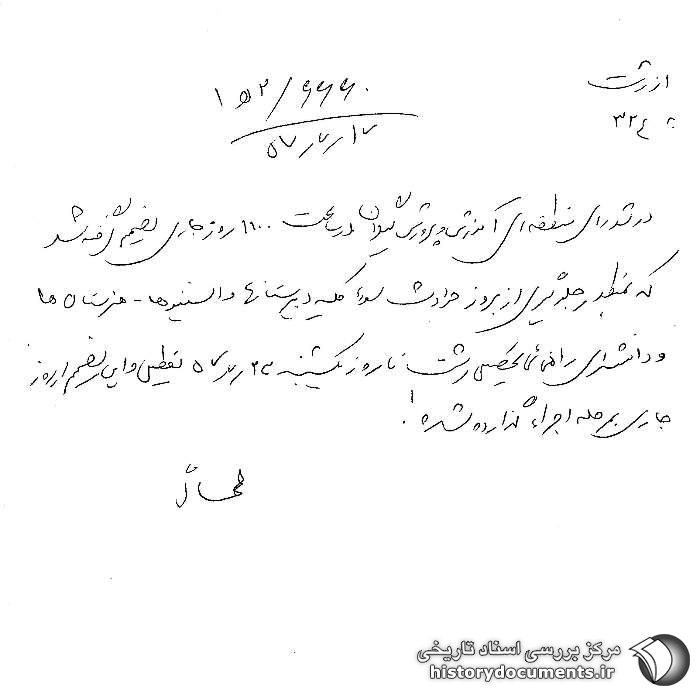 از رشت
به ۳۲۴
۱۵۲/۶۶۶۰
۵۷/۷/۱۷
در شورای منطقه‌ای آموزش و پرورش گیلان در ساعت ۱۱۰۰ روز جاری تصمیم گرفته شد
که بمنظور جلوگیری از بروز حوادث سوء کلیه دبیرستانها و انستیتوها - هنرستان ها
و دانشسرای راهنمائی تحصیلی رشت تا روز یکشنبه ۵۷/۷/۲۳ تعطیل و این تصمیم از روز
جاری بمرحله اجراء گذارده شده!
مرکز بررسی اسناد تاریخی
historydocuments.ir